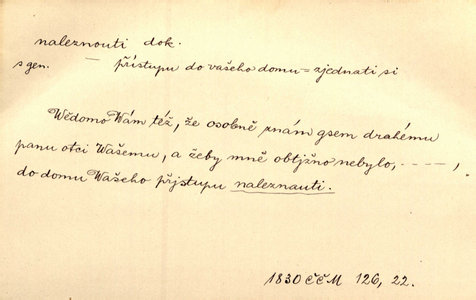 naleznouti dok.
s gen. — přístupu do vašeho domu = zjednati si
Wědomo Wám též, že osobně znám gsem drahému
panu otci Wašemu, a žeby mně obtjžno nebylo, - - - - ,
do domu Wašeho přjstupu naleznauti.
1830 ČČM 126, 22.